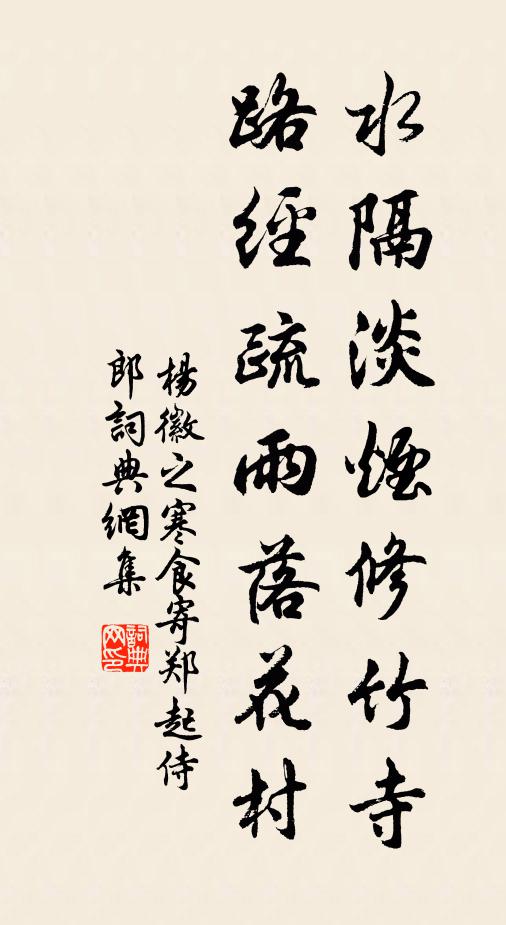 水隔淡煙修竹寺
路經疏雨落花村
楊徽之寒食寄郑起侍
郎詞典網集
詞典网印